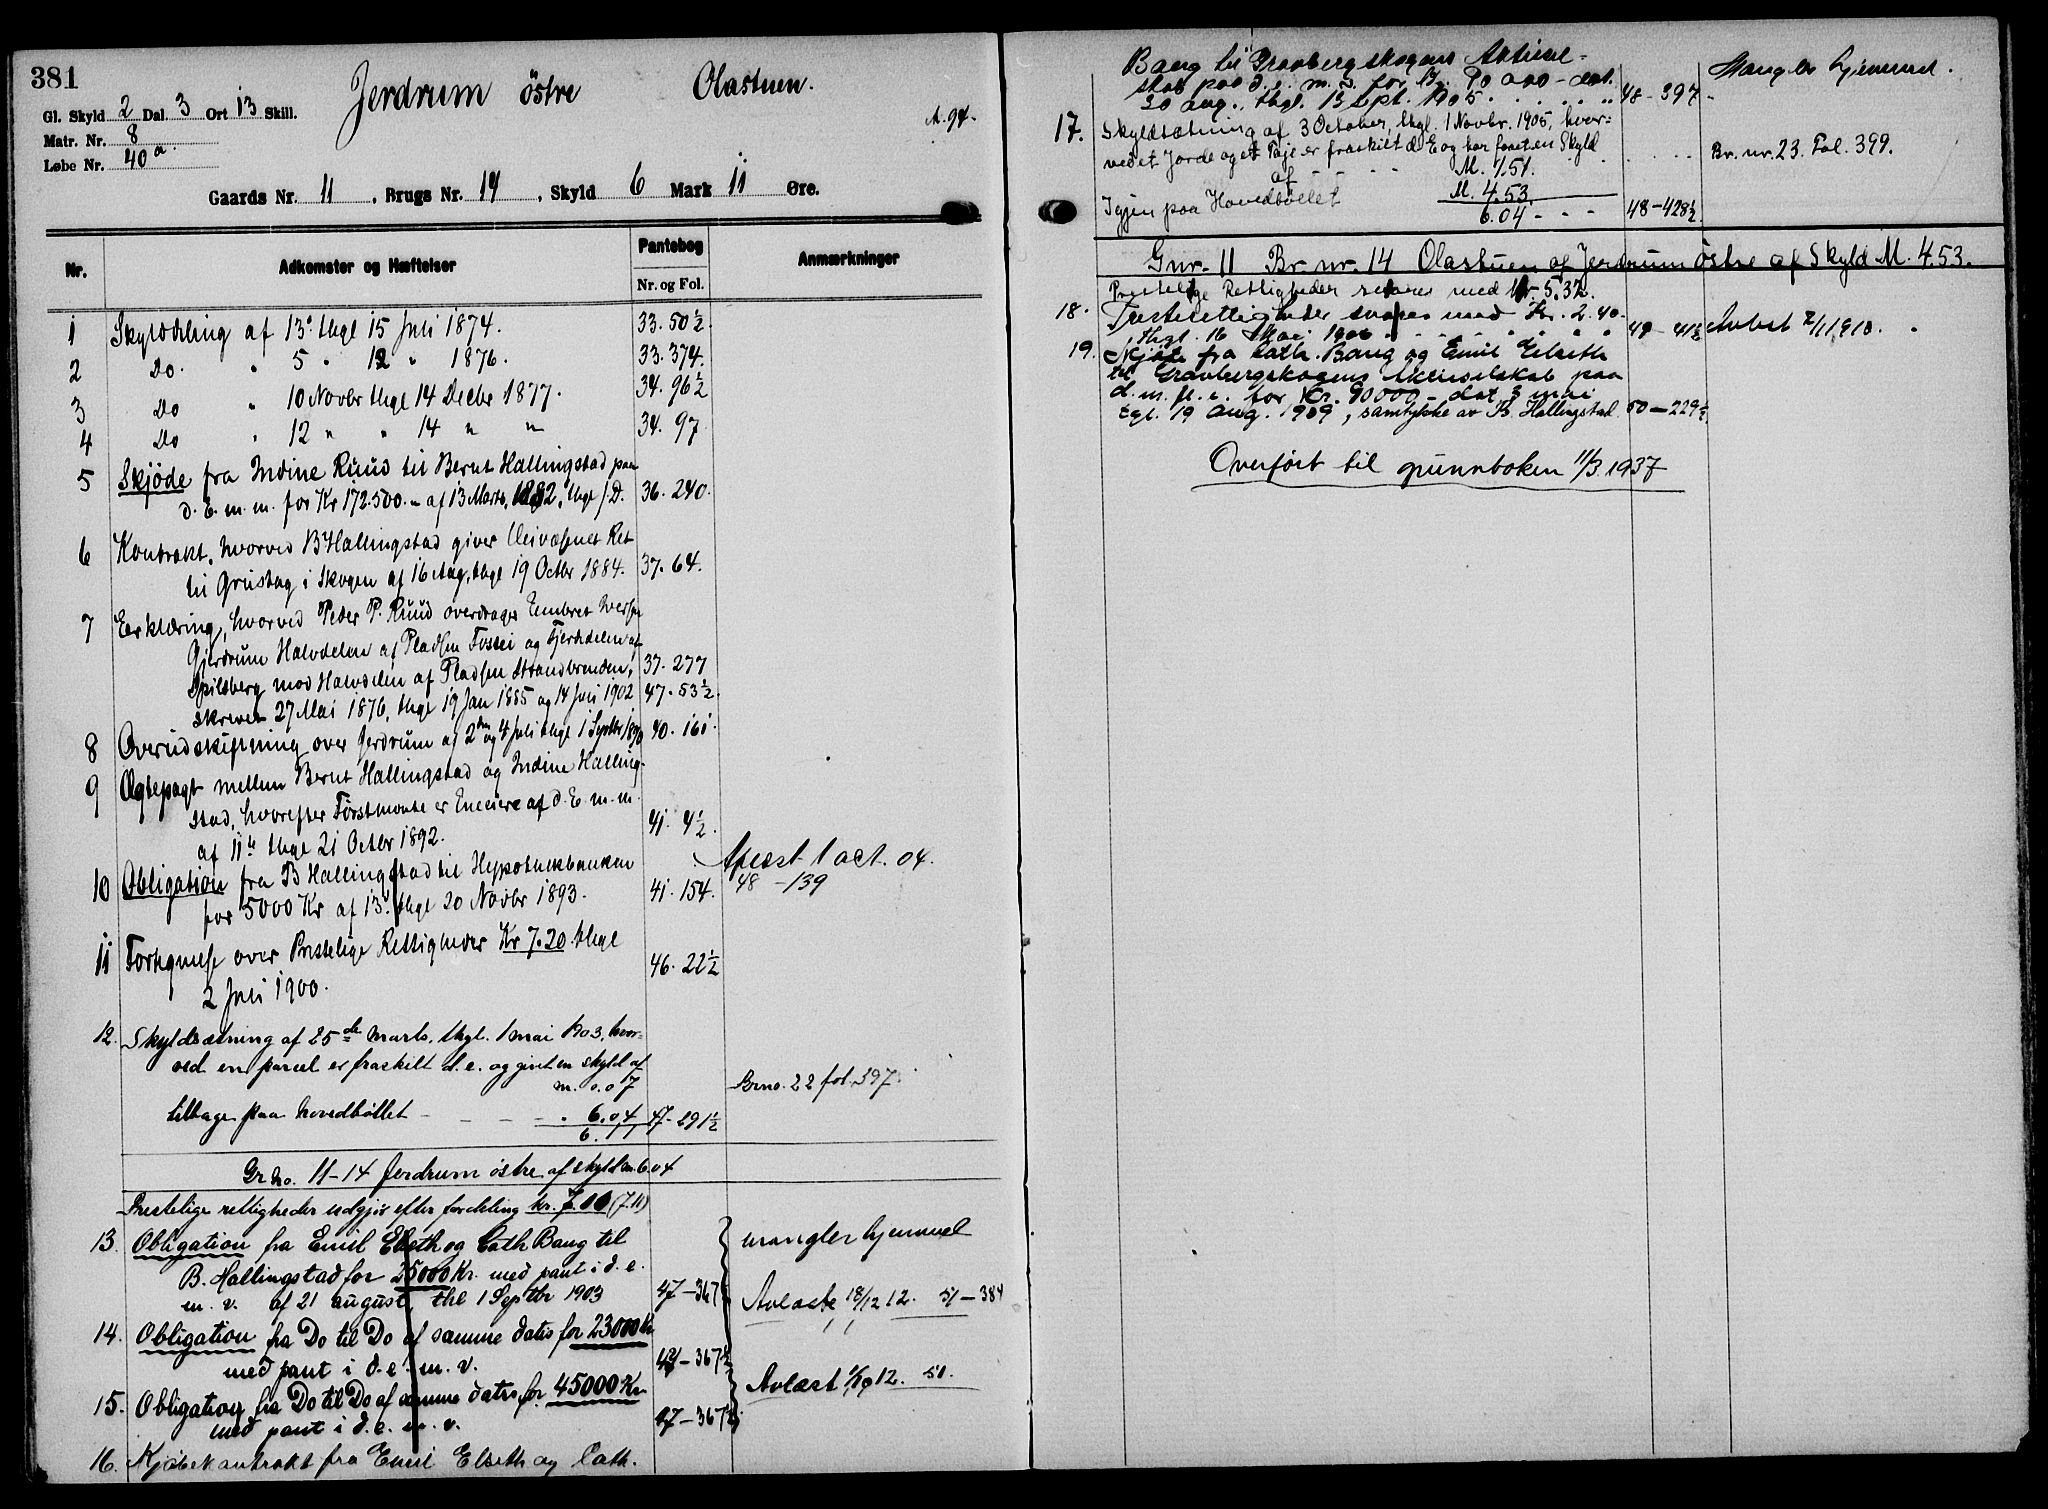 381
Jerdrum östre Olastuen.
Gl. Skyld 2 Dal. 3 Ort 13 Skill.
A. 94.
Matr. Nr. 8
Løbe Nr. 40 a.
Gaards Nr. 11, Brugs Nr. 14, Skyld 6 Mark 11 Øre.
Nr.
Adkomster og Hæftelser
Pantebog
Nr. og Fol.
Anmærkninger
1 Skylddeling af 13. thgl 15 Juli 1874. 33. 50½
2 Do. " 5 " 12 " 1876. 33. 374.
3 Do " 10 Novbr thgl 14 Decbr 1877. 34. 96½
4 Do " 12 " " 14 " " 34. 97
5 Skjöde fra Indine Ruud til Bernt Hallingstad paa
d. E. m. m. for Kr 172.500.- af 13 Marts 1882, thgl s. D. 36. 240.
6 Kontrakt, hvorved B Hallingstad giver Veivæsenet Ret
til Grustag i Skogen af 16 Aug, thgl 19 Octbr 1884. 37. 64.
7 Erklæring, hvorved Peder P. Ruud overdrager Embret Iversen
Gjerdrum Halvdelen af Pladsen Fossei og Fjerdedelen af
Spilsberg mod Halvdelen af Pladsen Strandbrenden, 37. 277
skrevet 27 Mai 1876, thgl 19 Jan 1885 og 14 Juli 1902 47. 53½
8 Overudskiftning over Jerdrum af 2den og 4 Juli thgl 1 Septbr 1890 40. 161.
9 Ægtepagt mellem Bernt Hallingstad og Indine Halling-
stad, hvorefter Førstnævnte er Eneeier af d. E. m. m.
af 11te thgl 21 Octbr 1892. 41. 4½
10 Obligation fra B Hallingstad til Hypothekbanken
for 5000 Kr af 13. thgl 20 Novbr 1893. 41. 154.
Aflæst 1 oct. 04.
48 - 139
11 Fortegnelse over Prestelige Rettigheder Kr 7.20 thgl
2 Juli 1900. 46. 22½
12. Skyldsætning af 25de marts, thgl. 1 mai 1903, hvor-
ved en parcel er fraskilt d. e. og givet en skyld af
m. 0.07 Brno. 22 fol. 397.
tilbage paa hovedbøllet - - - " 6.04 47-291½
6.11
Gr no. 11-14 Jerdrum østre af skyld m. 6.04
Prestelige rettigheder udgjør efter fordeling kr. 7.10 (7.11)
13. Obligation fra Emil Elseth og Cath Bang til
B. Hallingstad for 25000 Kr. med pant i d. e.
m. v. af 21 august, thl 1 Septbr 1903 47-367
mangler hjemmel
Avlæste 18/12 12. 51-384
14. Obligation fra Do til Do af samme datis for 23000 Kr
med pant i d. e. m. v. 47-367½
15. Obligation fra Do til Do af samme datis for 45000 Kr
med pant i d. e. m. v. 47-367½
16. Kjøbekontrakt fra Emil Elseth og Cath.
Bang til Gravbergskogens Aktiesel-
skab paa d. e. m. v. for Kr. 90 000 - dat.
30 aug., thgl. 13 Spt. 1905 48-397
Mangler hjemmel.
17. Skyldsætning af 3 October, thgl. 1 Novbr. 1905, hvor-
ved et Jorde og et Løe er fraskilt d. E og har faaet en Skyld
af - - - M. 1.51. Br. nr. 23. Fol. 399.
Igjen paa Hovedbøelet M. 4.53.
6.04 - - - 48-428½
Gnr. 11 Br. nr. 14 Olastuen af Jerdrum østre af Skyld M. 4.53.
Prestelige Rettigheder svares med Kr. 5.32.
18. svares med Kr. 2.40.
thgl. 16 Mai 1906 49-41½
19. Skjøte fra Cath. Bang og Emil Elseth
til Gravbergskogens Aktieselskab paa
d. m. fl. e. for Kr. 90000 - dat 3 mai
tgl. 19 aug. 1909, samtykke av B. Hallingstad. 50-229½
Overført til grunnboken 11/3. 1937